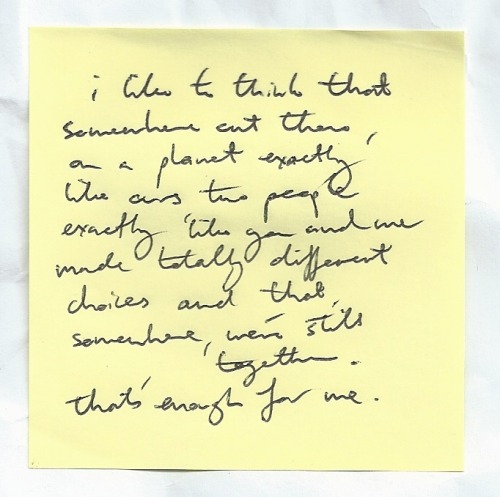 i like to think that
somewhere out there,
on a planet exactly
like ours two people
exactly like you and me
made totally different
choices and that,
somewhere, we're still
together.
that's enough for me.